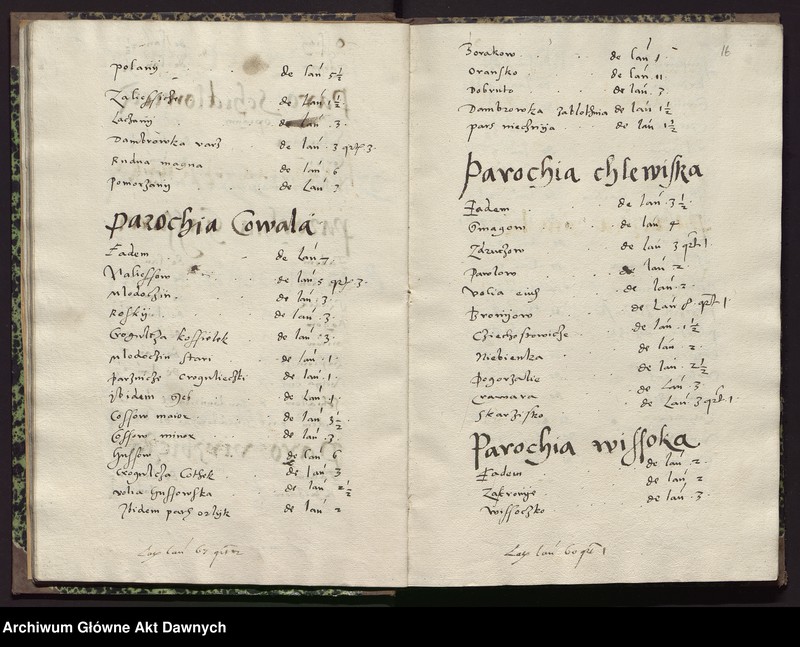 polany de lan̄ 5½
Zaliessicze de Lan̄ 1½
Laczany de lan̄ 3.
Dambrowka varz de lan̄ 3 qrt 3.
Rudna magna de lan̄ 6
pomorzany de Lan̄ 3
Parochia Cowala
Eadem de lan̄ 4.
Maliessow de lan̄ 5 qrt 3.
Mlodoczin de lan̄ 3.
Rosky de lan̄ 3.
Crogulcza kossiolek de lan̄ 3.
Mlodoczin stari de lan̄ 1.
parznicze croguliecki de lan̄ 1.
Ibidem de Lan̄ 1
Cossow maior de lan̄ 3½
Cossow minor de lan̄ 3
Gussow de lan̄ 6
Crogulcza Cothek de lan̄ 3
volia Gussowska de lan̄ 2½
Ibidem pars orlyk de lan̄ 2
Lan̄ 67
16
Borakow de lan̄ 1
Oransko de lan̄ 11
Dobruto de lan̄ 3
Dambrowka zablothnia de lan̄ 1½
pars niechzyia de lan̄ 1½
Parochia chlewiska
Eadem de lan̄ 3½
Smagow de lan̄ 4
Zaruczow de lan̄ 3 qrt 1
Pawlow de lan̄ 2
volia eius de lan̄ 2.
Broniow de Lan̄ 8 qrt 1
Cziechostowicze de lan̄ 1½
Niebienka de lan̄ 2
Pogorzalie de lan̄ 2½
Cravara de Lan̄ 3
Skarzisko de Lan̄ 3 qrt 1
Parochia wissoka
Eadem de lan̄ 2.
Zakronye de lan̄ 2
wissoczko de lan̄ 3.
lan̄ 60 qrt 1
Archiwum Główne Akt Dawnych